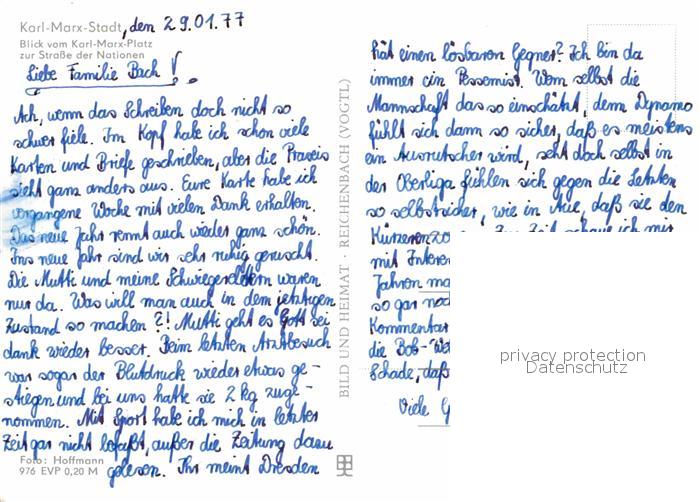 Karl-Marx-Stadt, den 29.01.77
Blick vom Karl-Marx-Platz
zur Straße der Nationen
Liebe Familie Bach!
Ach, wenn das Schreiben doch nicht so
schwer fiele. Im Kopf habe ich schon viele
Karten und Briefe geschrieben, aber die Praxis
sieht ganz anders aus. Eure Karte habe ich
vergangene Woche mit vielen Dank erhalten.
Das neue Jahr rennt auch wieder ganz schön.
Ins neue Jahr sind wir sehr ruhig gerutscht.
Die Mutti und meine Schwiegereltern waren
nur da. Was will man auch in dem jetzigen
Zustand so machen?! Mutti geht es Gott sei
dank wieder besser. Beim letzten Arztbesuch
war sogar der Blutdruck wieder etwas ge-
stiegen und bei uns hatte sie 2 kg zuge-
nommen. Mit Sport habe ich mich in letzter
Zeit gar nicht befaßt, außer die Zeitung dazu
gelesen. Ihr meint Dresden
Foto: Hoffmann
976 EVP 0,20 M
BILD UND HEIMAT · REICHENBACH (VOGTL)
hät einen lösbaren Gegner? Ich bin da
immer ein Pessemist. Wenn selbst die
Mannschaft das so einschätzt, denn Dynamo
fühlt sich dann so sicher, daß es meistens
ein Ausrutscher wird, seht doch selbst in
der Oberliga fühlen sich gegen die Letzten
so selbstsicher, wie in Aue, daß sie den
Kürzeren zo
mit Interes
Jahren ma
so gar noc
Kommentar
die Bob-We
Schade, daß
Viele G
privacy protection
Datenschutz